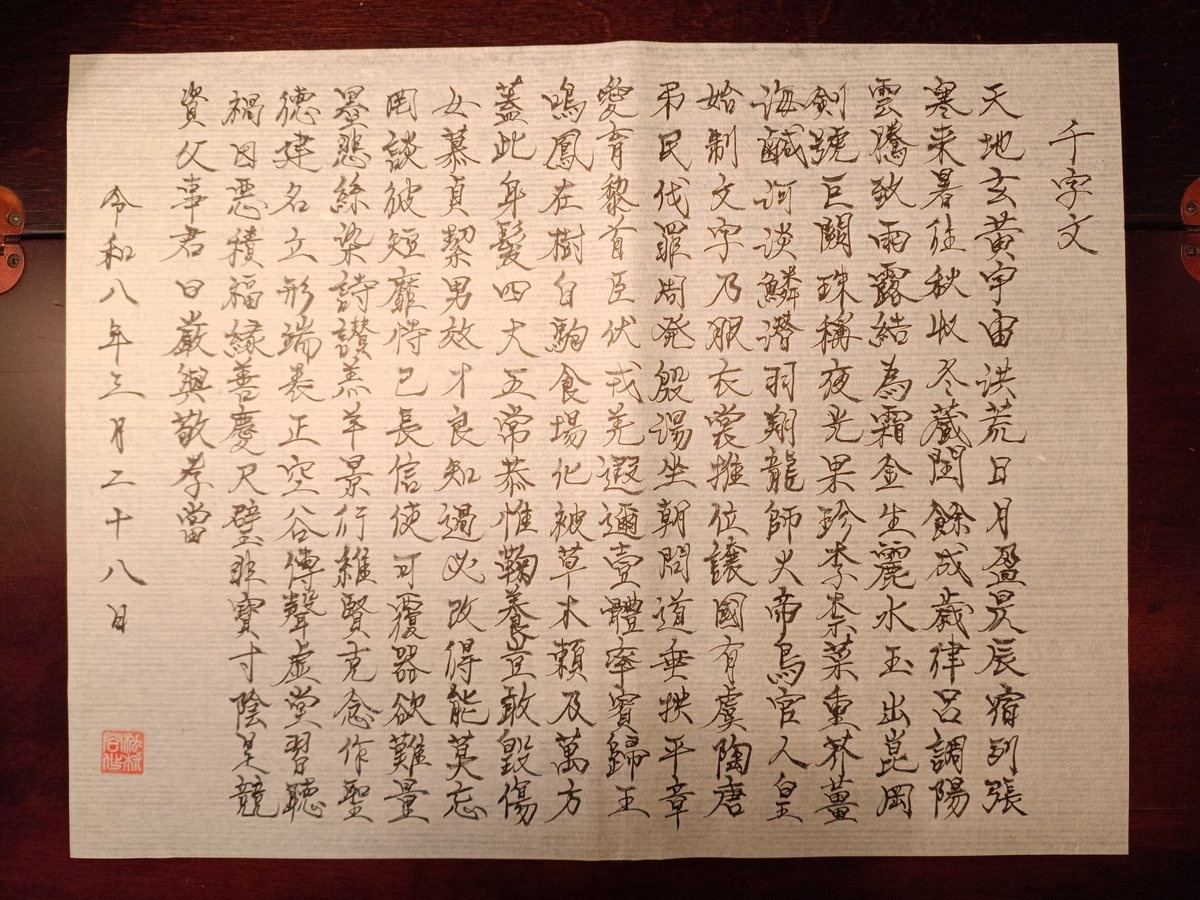 千字文
天地玄黄宇宙洪荒日月盈昃辰宿列張
寒来暑往秋収冬蔵閏餘成歳律呂調陽
雲騰致雨露結為霜金生麗水玉出崑岡
剣號巨闕珠稱夜光果珍李柰菜重芥薑
海鹹河淡鱗潜羽翔龍師火帝鳥官人皇
始制文字乃服衣裳推位讓國有虞陶唐
弔民伐罪周発殷湯坐朝問道垂拱平章
愛育黎首臣伏戎羌遐邇壹體率賓歸王
鳴鳳在樹白駒食場化被草木頼及萬方
蓋此身髪四大五常恭惟鞠養豈敢毀傷
女慕貞絜男效才良知過必改得能莫忘
罔談彼短靡恃己長信使可覆器欲難量
墨悲絲染詩讃羔羊景行維賢克念作聖
徳建名立形端表正空谷傳聲虚堂習聽
禍因悪積福縁善慶尺璧非寶寸陰是競
資父事君曰嚴與敬孝當
令和八年三月二十八日